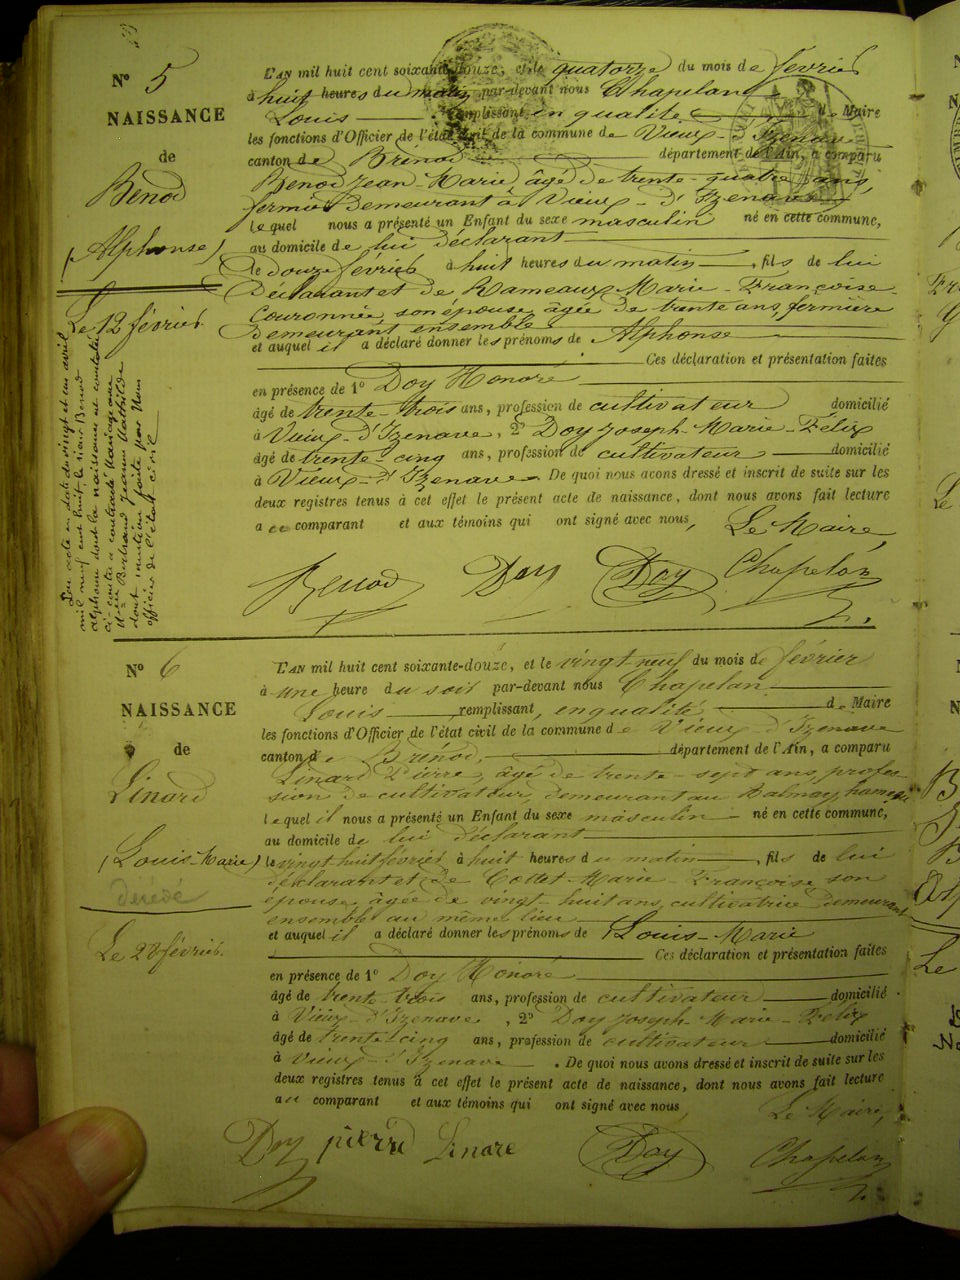 N° 5
NAISSANCE
de
Benod
(Alphonse)
Le 12 février
Par acte en date du vingt et un avril
mil neuf cent huit, le sieur Benod
alphonse dont la naissance est constatée
ci-contre a contracté mariage avec
Bertrand Jeanne Mathilde
dont mention faite par Nous
officier de l'état civil
L'AN mil huit cent soixante-douze, et le quatorze du mois de février
à huit heures du matin par-devant nous Chapelan
Louis remplissant, en qualité de Maire
les fonctions d'Officier de l'état civil de la commune de Vieux-d'Izenave
canton de Brénod département de l'Ain, a comparu
Benod Jean-Marie, âgé de trente-quatre ans,
fermier demeurant à Vieux-d'Izenave
lequel nous a présenté un Enfant du sexe masculin né en cette commune,
au domicile de lui déclarant
le douze février à huit heures du matin, fils de lui
déclarant et de Rameaux Marie-Françoise-
Couronnée, son épouse, âgée de trente ans, fermière
demeurant ensemble
et auquel il a déclaré donner les prénoms de Alphonse
Ces déclaration et présentation faites
en présence de 1° Doy Honoré
âgé de trente-trois ans, profession de cultivateur domicilié
à Vieux-d'Izenave, 2° Doy Joseph-Marie-Félix
âgé de trente-cinq ans, profession de cultivateur domicilié
à Vieux-d'Izenave. De quoi nous avons dressé et inscrit de suite sur les
deux registres tenus à cet effet le présent acte de naissance, dont nous avons fait lecture
au comparant et aux témoins qui ont signé avec nous,
Le Maire,
Benod Doy Doy Chapelan
N° 6
NAISSANCE
de
Linard
(Louis-Marie)
décédé
Le 28 février.
L'AN mil huit cent soixante-douze, et le vingt neuf du mois de février
à une heure du soir par-devant nous Chapelan
Louis remplissant, en qualité de Maire
les fonctions d'Officier de l'état civil de la commune de Vieux-d'Izenave
canton de Brénod, département de l'Ain, a comparu
Linard Pierre, âgé de trente-sept ans, profes-
sion de cultivateur, demeurant au Balmay, hameau
lequel il nous a présenté un Enfant du sexe masculin né en cette commune,
au domicile de lui déclarant
le vingt huit février à huit heures du matin, fils de lui
déclarant et de Collet-Marie-Françoise son
épouse, âgée de vingt-huit ans, cultivatrice demeurant
ensemble au même lieu
et auquel il a déclaré donner les prénoms de Louis-Marie
Ces déclaration et présentation faites
en présence de 1° Doy Honoré
âgé de trente-trois ans, profession de cultivateur domicilié
à Vieux-d'Izenave, 2° Doy Joseph-Marie-Félix
âgé de trente-cinq ans, profession de cultivateur domicilié
à Vieux-d'Izenave. De quoi nous avons dressé et inscrit de suite sur les
deux registres tenus à cet effet le présent acte de naissance, dont nous avons fait lecture
au comparant et aux témoins qui ont signé avec nous,
Le Maire,
Doy pierre Linare Doy Chapelan